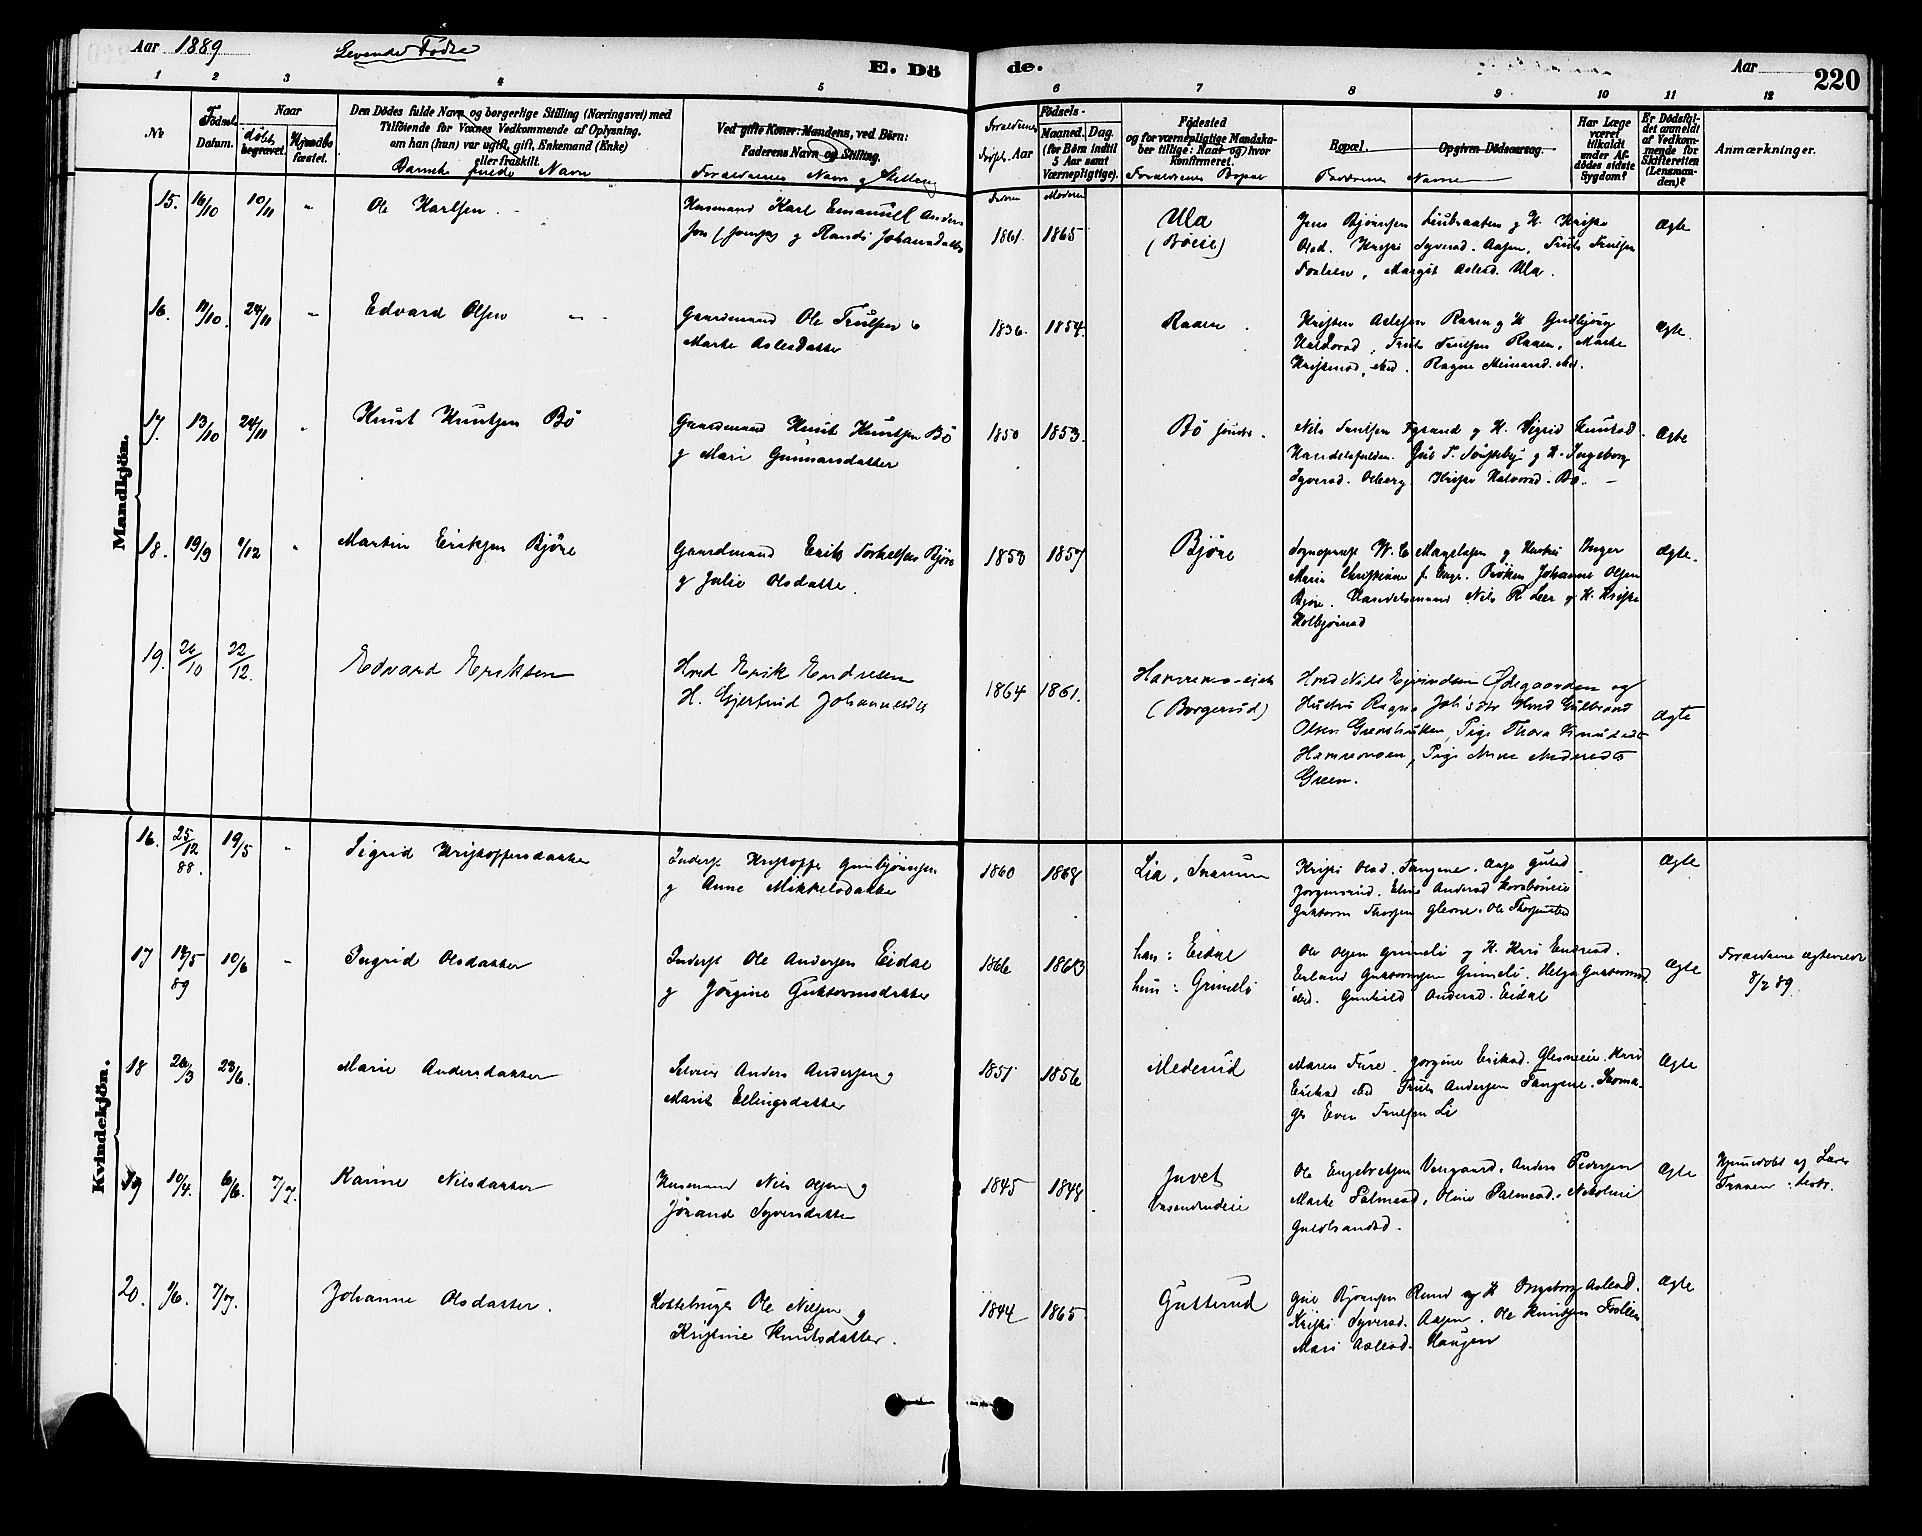 Aar 1889 Levende Fødte
E. Dö
de.
Aar
220
1 2 3 4 5 6 7 8 9 10 11 12
No
Födsels
Datum.
Naar
döbt
begravet.
Hjemdöbt
fæstet.
Den Dödes fulde Navn og borgerlige Stilling (Næringsvei) med
Tilföiende for Voxnes Vedkommende af Oplysning.
om han (hun) var ugift, gift, Enkemand (Enke)
eller fraskilt.
Barnets fulde Navn
Ved gifte Koner: Mandens, ved Börn:
Faderens Navn og Stilling.
Forældrenes Navn og Stilling
Forældrenes
Födsels Aar
Födsels-
Maaned. Dag.
(for Börn indtil
5 Aar samt
Værnepligtige).
Födested
og for værnepligtige Mandska-
ber tillige: Naar og hvor
konfirmeret.
Forældrenes Bopæl
Bopæl.
Opgiven Dödsaarsag.
Faddernes Navne
Har Læge
været
tilkaldt
under Af-
dödes sidste
Sygdom?
Er Dödsfal-
det anmeldt
af Vedkom-
mende for
Skifteretten
(Lensman-
den)?
Anmærkninger.
Mandkjön.
15. 16/10 10/11 " Ole Karlsen
Husmand Karl Emanuel Anders
og Randi Johansdatter
Faderen Moderen
1861. 1865
Ula
(Böeie)
Jens Bjørnsen og H. Kristi
Olsd. Kristi Syversd. Aasen, Truls Trulsen
Margit Aslesd. Ula.
Ægte
16. 11/10. 24/11 " Edvard Olsen
Gaardmand Ole Trulsen &
Marte Aslesdatter
1836. 1854.
Raaen.
Kristen Aslesen Raaen og H. Gudbjørg
Halvorsd, Truls Trulsen Raaen, Marte
Kristensd, sted. Ragne
Ægte.
17. 13/10 24/11 " Knut Knutsen Bö
Gaardmand Knut Knutsen Bö
og Mari Gunnarsdatter
1850 1853.
Bö søndre.
Nils Trulsen og H. Sigrid Knutsd.
H. Ingeborg
Syversd. Kristi Halvorsd. Bö.
Ægte
18. 19/9 1/12 " Martin Eriksen Björe
Gaardmand Erik Torkelsen Björe
og Julie Olsdatter.
1853 1857
Björe
Sognepræst W. C. Magelssen og Hustru Inger
Marie Christiane f. Unge. Fröken Johanne Olsen
Björe. Handelsmand Nils R. Leer og H. Kristi
Kolbjörnsd
Ægte.
19. 26/10 22/12. Edvard Eriksen
Hmd Erik Endresen
H. Gjertrud Johannesdtr
1864 1861.
Hamremoeiet
(Borgerud)
Hmd Nils Eyvindsen Ødegaarden og
Hustru Ragne Joh'sdtr Hmd Gulbrand
Olsen Grenshullen, Pige Thora Knudsdt
Hamremoen, Pige Anne Andersdt
Green.
Ægte
Kvindekjön.
16. 25/12 88. 19/5 " Sigrid Kristoffersdatter
Inderst Kristoffer Gunbjörnsen
og Anne Mikkelsdatter
1860 1868
Lia, Snarum
Kristi Olsd. Tangene. Aase Gulsd
Jorgensrud. Eline Andersd
Guttorm Thorsen Glesne. Ole Thorsensted
Ægte
17 12/5 89 10/6 " Ingrid Olsdatter
Inderst Ole Andersen Eidal
og Jörgine Guttormsdatter
1866 1863
han: Eidal
hun: Grimelö
Ole Olsen Grimeli og H. Kari Endresd.
Erland Guttormsen Grimeli. Helga Guttormsd
sted. Gunhild Andersd. Eidal
Ægte
Forældrene ægteviede
8/7 89.
18 20/3 23/6. Marie Andersdatter
Selveier Anders Andersen og
Marit Ellingsdatter
1851. 1856
Medesud
Maren Fure. Jorgine Eriksd. Glesneeie. Kari
Eriksd sted Truls Andersen Tangene. Skoma-
ger Even Trulsen Li
Ægte
19 10/4. 6/6. 7/7. Karine Nilsdatter
Husmand Nils Olsen og
Jörand Syversdatter
1845 1848
Juvet
Vasendrudeie
Ole Engebretsen Vengaard. Anders Pedersen
Marte Palmesd, Oline Palmesd. Nikoline
Guldbrandsd.
Ægte
Hjemmedöbt af Lærer
20. 1/6. 7/7. Johanne Olsdatter.
Ole Nilsen og
Kristine Knutsdatter.
1844 1865
Gutterud
Gul Bjørnsen Rund og H. Ingeborg Aslesd.
Kristi Syversd. Aasen. Ole Knutsen
Mari Aslesd. Haugen
Ægte